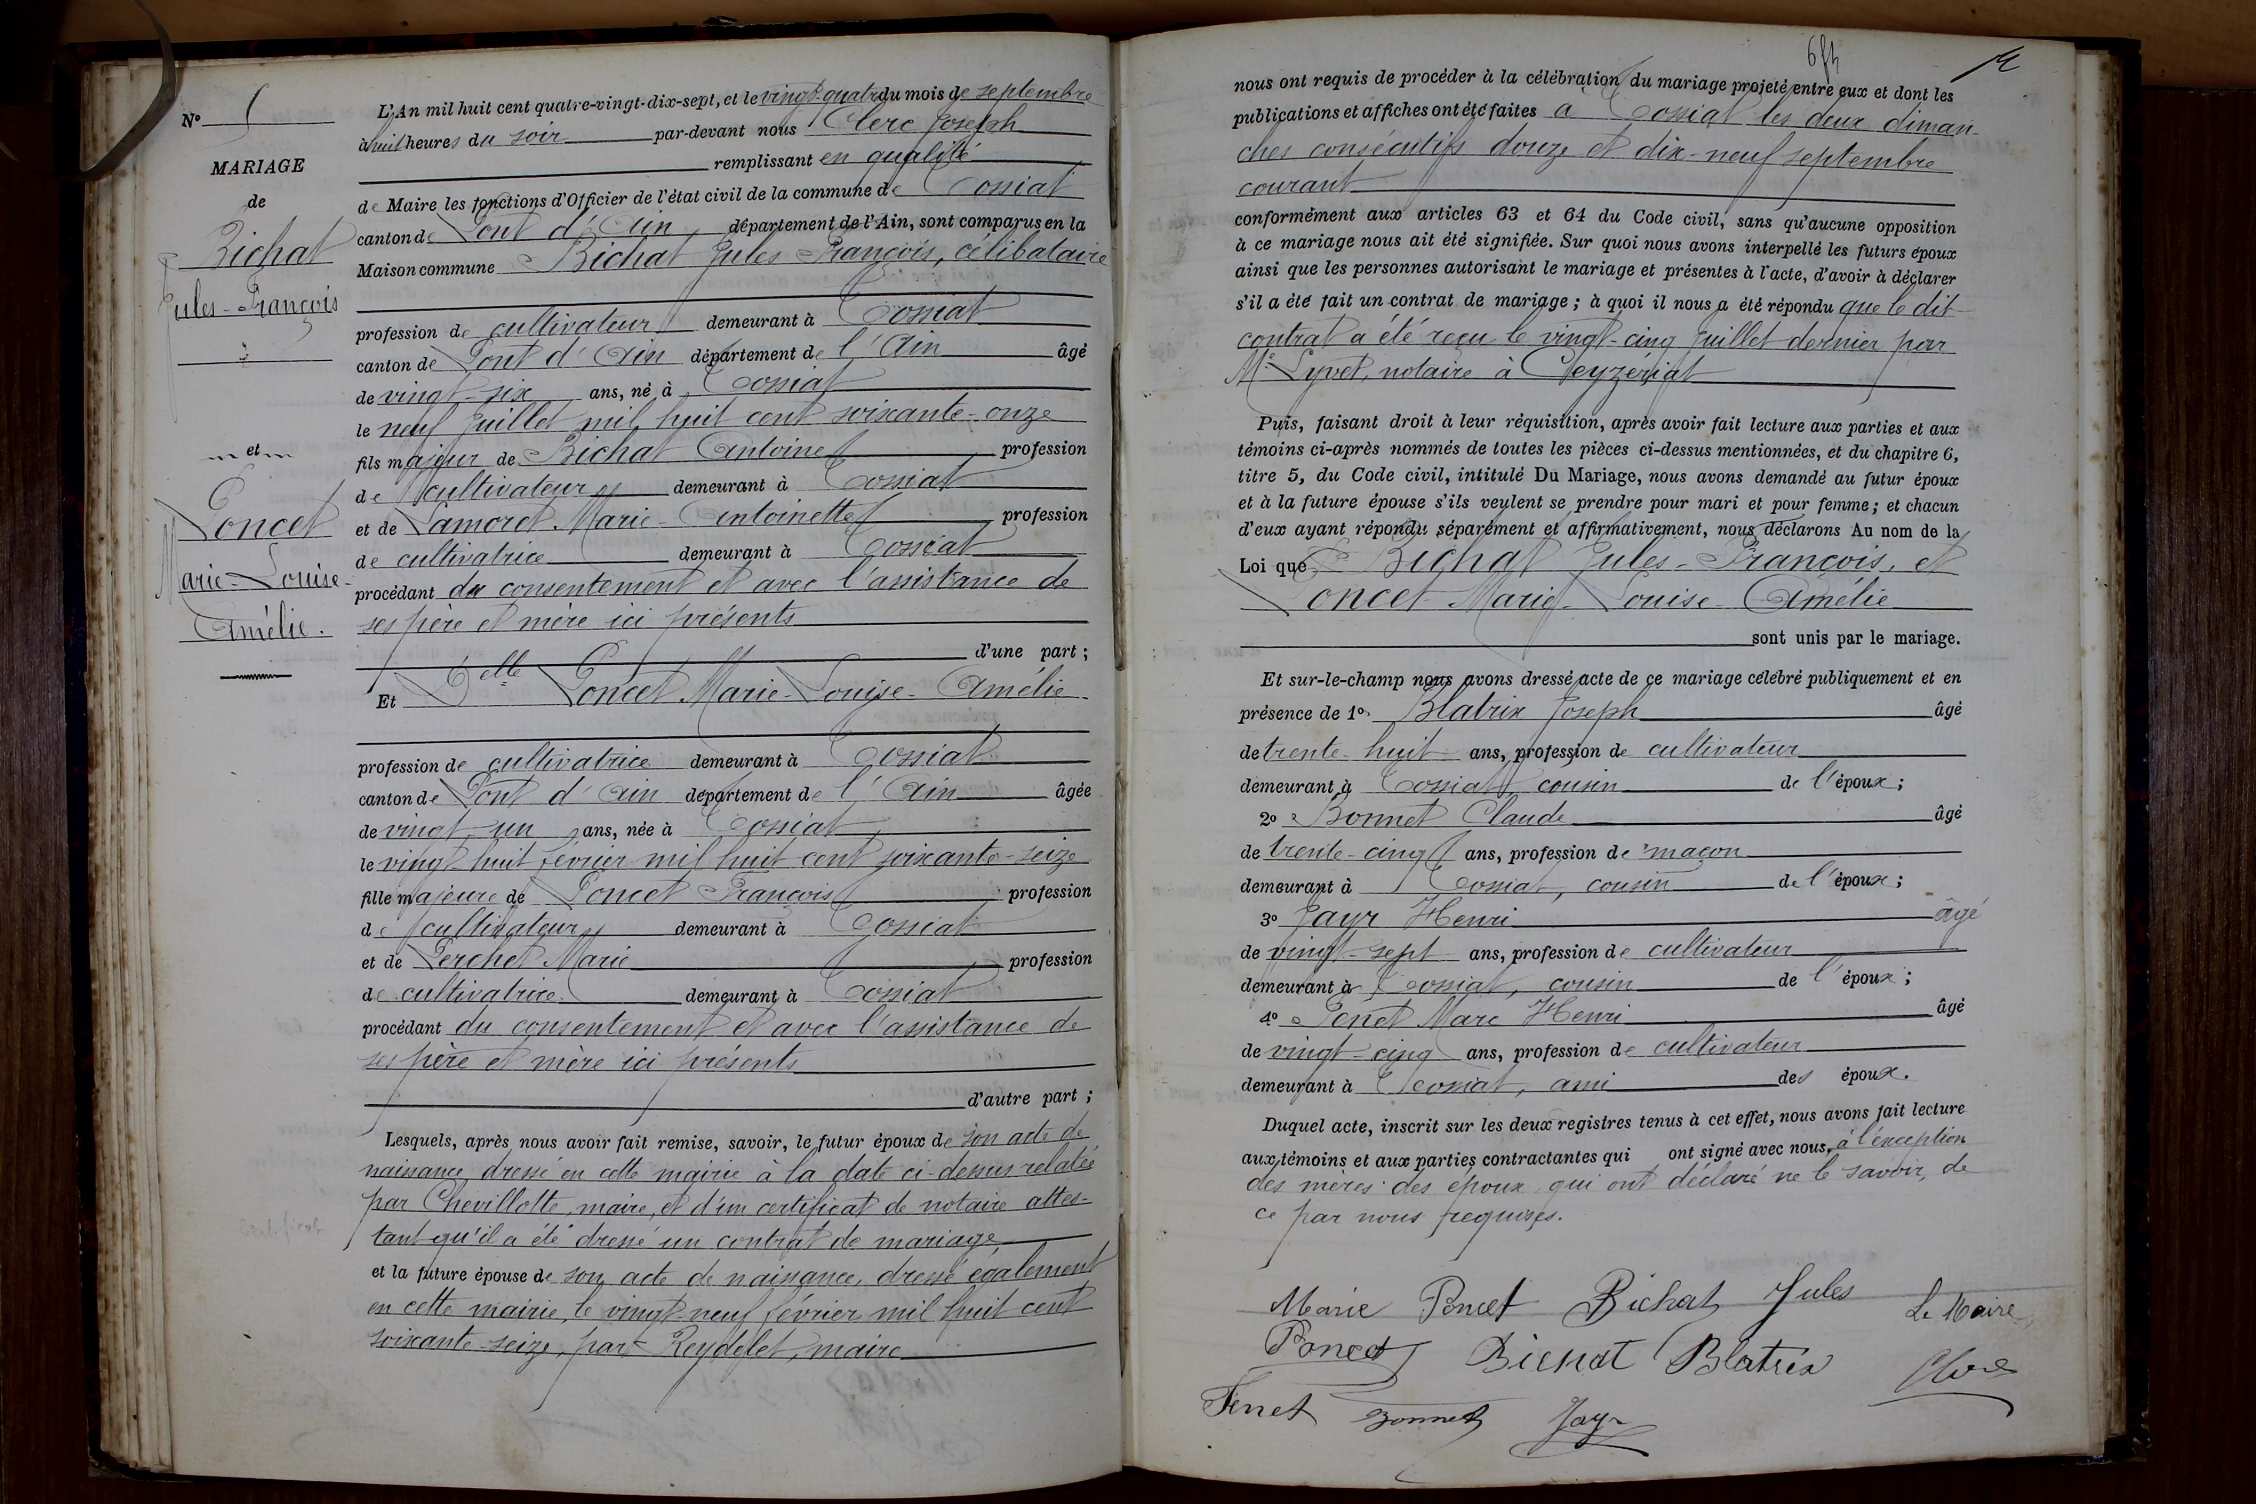 N° 5
MARIAGE
de
Bichat
Jules-François
et
Poncet
Marie-Louise-
Amélie.
L'An mil huit cent quatre-vingt-dix-sept, et le vingt-quatre du mois de septembre
à huit heures du soir par-devant nous Clerc Joseph
remplissant en qualité
de Maire les fonctions d'Officier de l'état civil de la commune de Tossiat
canton de Pont d'Ain département de l'Ain, sont comparus en la
Maison commune Bichat Jules François, célibataire
profession de cultivateur demeurant à Tossiat
canton de Pont d'Ain département de l'Ain âgé
de vingt-six ans, né à Tossiat
le neuf Juillet mil huit cent soixante-onze
fils majeur de Bichat Antoine profession
de cultivateur demeurant à Tossiat
et de Lamoret Marie-Antoinette profession
de cultivatrice demeurant à Tossiat
procédant du consentement et avec l'assistance de
ses père et mère ici présents
d'une part ;
Et Delle Poncet Marie-Louise-Amélie
profession de cultivatrice demeurant à Tossiat
canton de Pont d'Ain département de l'Ain âgée
de vingt-un ans, née à Tossiat
le vingt-huit février mil huit cent soixante-seize
fille majeure de Poncet François profession
de cultivateur demeurant à Tossiat
et de Perchet Marie profession
de cultivatrice demeurant à Tossiat
procédant du consentement et avec l'assistance de
ses père et mère ici présents
d'autre part ;
Lesquels, après nous avoir fait remise, savoir, le futur époux de son acte de
naissance dressé en cette mairie à la date ci-dessus relatée
par Chevillotte, maire, et d'un certificat de notaire attes-
tant qu'il a été dressé un contrat de mariage,
et la future épouse de son acte de naissance, dressé également
en cette mairie, le vingt-neuf février mil huit cent
soixante-seize, par Reydelet, maire
nous ont requis de procéder à la célébration du mariage projeté entre eux et dont les
publications et affiches ont été faites à Tossiat les deux diman-
ches consécutifs douze et dix-neuf septembre
courant
conformément aux articles 63 et 64 du Code civil, sans qu'aucune opposition
à ce mariage nous ait été signifiée. Sur quoi nous avons interpellé les futurs époux
ainsi que les personnes autorisant le mariage et présentes à l'acte, d'avoir à déclarer
s'il a été fait un contrat de mariage ; à quoi il nous a été répondu que le dit
contrat a été reçu le vingt-cinq Juillet dernier par
Me Lyvet, notaire à Ceyzériat
Puis, faisant droit à leur réquisition, après avoir fait lecture aux parties et aux
témoins ci-après nommés de toutes les pièces ci-dessus mentionnées, et du chapitre 6,
titre 5, du Code civil, intitulé Du Mariage, nous avons demandé au futur époux
et à la future épouse s'ils veulent se prendre pour mari et pour femme ; et chacun
d'eux ayant répondu séparément et affirmativement, nous déclarons Au nom de la
Loi que Bichat Jules-François, et
Poncet Marie-Louise-Amélie
sont unis par le mariage.
Et sur-le-champ nous avons dressé acte de ce mariage célébré publiquement et en
présence de 1° Blatrix Joseph âgé
de trente-huit ans, profession de cultivateur
demeurant à Tossiat, cousin de l'époux ;
2° Bonnet Claude âgé
de trente-cinq ans, profession de maçon
demeurant à Tossiat, cousin de l'époux ;
3° Jayr Henri âgé
de vingt-sept ans, profession de cultivateur
demeurant à Tossiat, cousin de l'époux ;
4° Fenet Marc Henri âgé
de vingt-cinq ans, profession de cultivateur
demeurant à Tossiat, ami des époux.
Duquel acte, inscrit sur les deux registres tenus à cet effet, nous avons fait lecture
aux témoins et aux parties contractantes qui ont signé avec nous, à l'exception
des mères des époux qui ont déclaré ne le savoir, de
ce par nous requises.
Marie Poncet Bichat Jules Le Maire
Poncet Bichat Blatrix Clerc
Fenet Bonnet Jayr